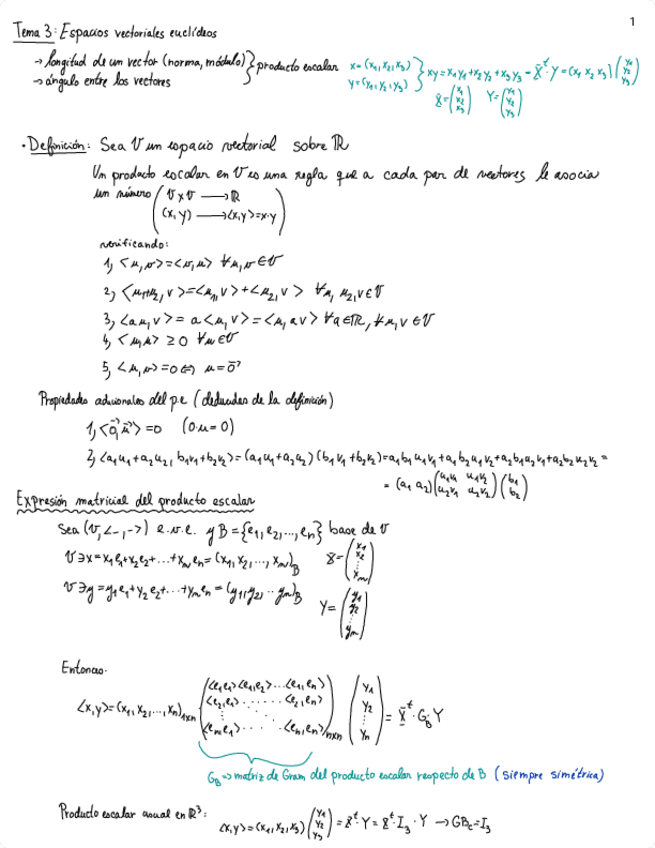 1
Tema 3: Espacios vectoriales euclídeos
→ longitud de un vector (norma, módulo) } producto escalar x=(x₁,x₂,x₃) } xy=x₁y₁+x₂y₂+x₃y₃ = X^t·Y=(x₁ x₂ x₃)(y₁ y₂ y₃)
→ ángulo entre los vectores y=(y₁,y₂,y₃)
X=(x₁ x₂ x₃) Y=(y₁ y₂ y₃)
· Definición: Sea V un espacio vectorial sobre ℝ
Un producto escalar en V es una regla que a cada par de vectores le asocia
un número ( V x V → ℝ
(x,y) → <x,y>=x·y )
verificando:
1, <u,v>=<v,u> ∀u,v∈V
2, <u₁+u₂,v>=<u₁,v>+<u₂,v> ∀u₁,u₂,v∈V
3, <au,v>=a<u,v>=<u,av> ∀a∈ℝ, ∀u,v∈V
4, <u,u> ≥ 0 ∀u∈V
5, <u,u>=0 ⇔ u=0⃗
Propiedades adicionales del p.e (deducidas de la definición)
1, <0⃗,u⃗>=0 (0·u=0)
2, <a₁u₁+a₂u₂, b₁v₁+b₂v₂>=(a₁u₁+a₂u₂)(b₁v₁+b₂v₂)=a₁b₁u₁v₁+a₁b₂u₁v₂+a₂b₁u₂v₁+a₂b₂u₂v₂=
=(a₁ a₂)(u₁v₁ u₁v₂ u₂v₁ u₂v₂)(b₁ b₂)
Expresión matricial del producto escalar
Sea (V,<-,->) e.v.e. y B={e₁,e₂,...,eₙ} base de V
V∋x=x₁e₁+x₂e₂+...+xₙeₙ=(x₁,x₂,...,xₙ)_B X=(x₁ x₂ ⋮ xₙ)
V∋y=y₁e₁+y₂e₂+...+yₙeₙ=(y₁,y₂,...yₙ)_B Y=(y₁ y₂ ⋮ yₙ)
Entonces.
<x,y>=(x₁,x₂,...,xₙ)₁ₓₙ (<e₁e₁> <e₁,e₂>...<e₁,eₙ> <e₂,e₁>......<e₂,eₙ> <eₙe₁>....<eₙ,eₙ>)ₙₓₙ (y₁ y₂ ⋮ yₙ) = X^t·G_B Y
G_B ⇒ matriz de Gram del producto escalar respecto de B (siempre simétrica)
Producto escalar usual en ℝ³:
<x,y>=(x₁,x₂,x₃)(y₁ y₂ y₃)=X^t·Y=X^t·I₃·Y → GBc=I₃